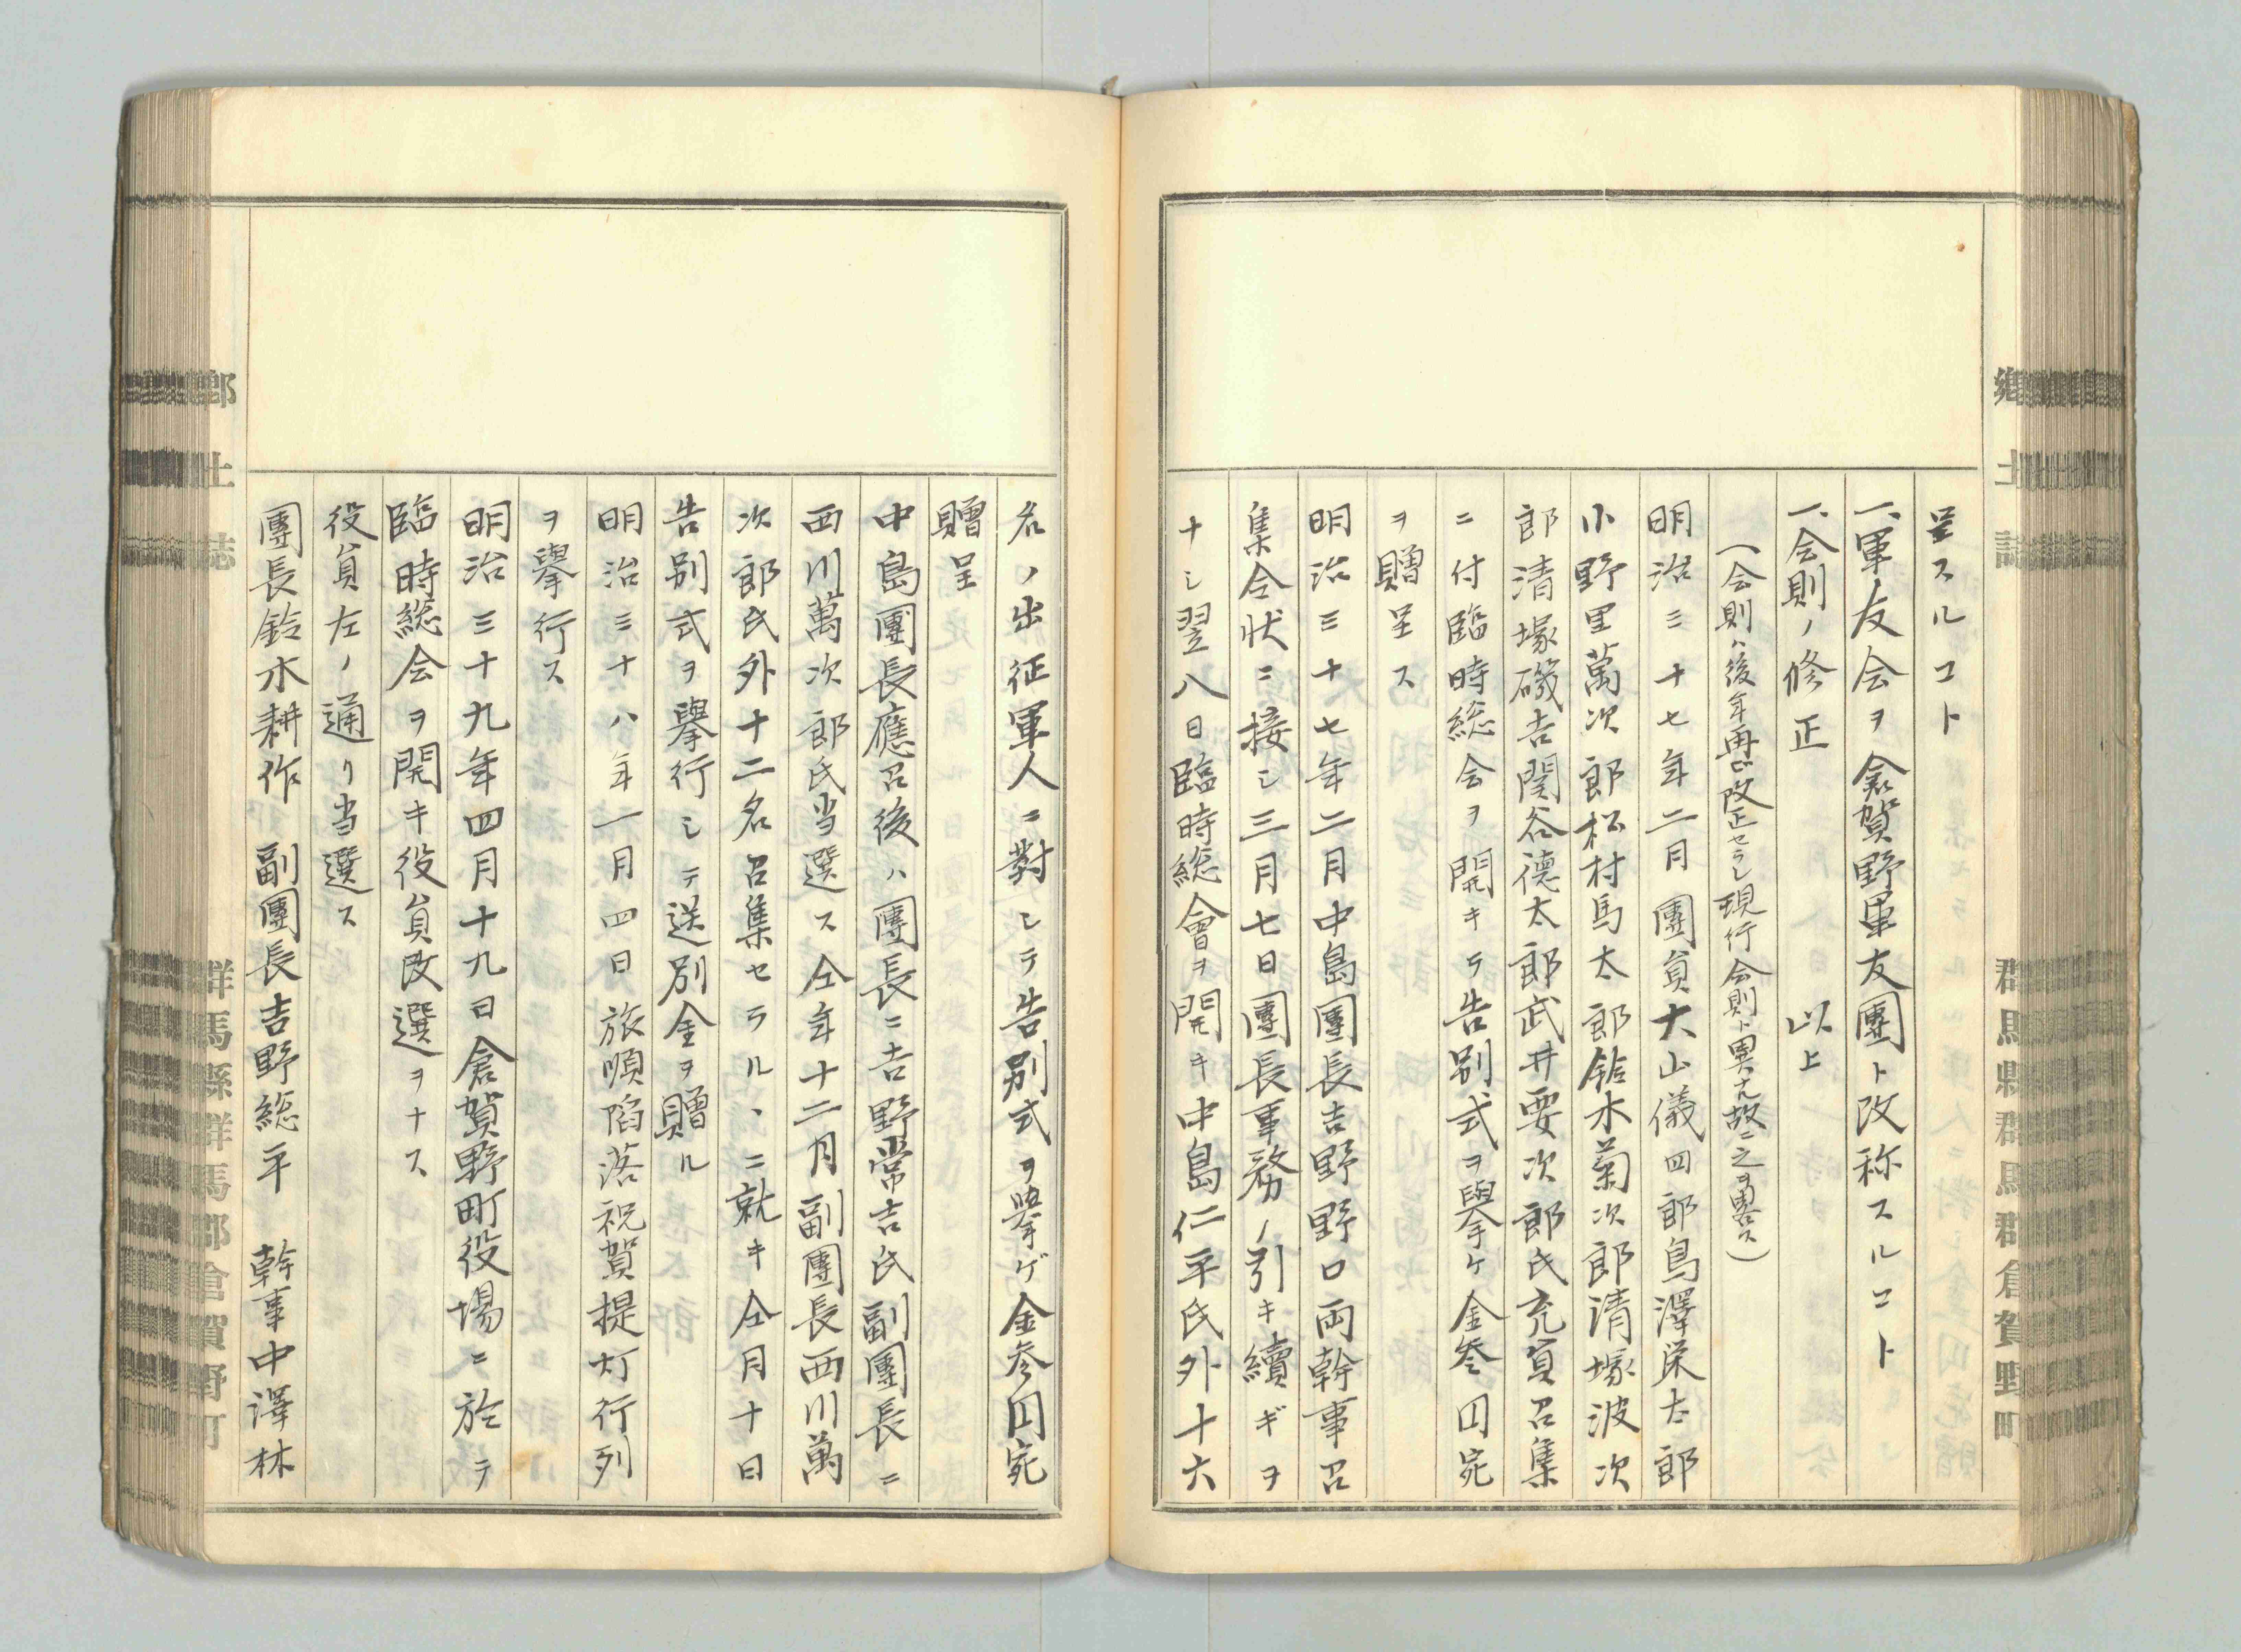 鄕土誌
群馬縣群馬郡倉賀野町
呈スルコト
一、軍ノ友会ヲ倉賀野軍友團ト改称スルコト
一、会則ノ修正　以上
（会則ハ後年再ビ改正セラレ現行会則ト異ナル故ニ之ヲ畧ス）
明治三十七年二月團員大山儀四郎鳥澤栄太郎
小野里萬次郎松村馬太郎鈴木菊次郎清塚波次
郎清塚磯吉関谷德太郎武井要次郎氏充員召集
ニ付臨時総会ヲ開キテ告別式ヲ擧ケ金叄円宛
ヲ贈呈ス
明治三十七年二月中島團長吉野野口両幹事召
集令状ニ接シ三月七日團長事務ノ引キ續ギヲ
ナシ翌八日臨時総會ヲ開キ中島仁平氏外十六
名ノ出征軍人ニ對シテ告別式ヲ擧ゲ金参円宛
贈呈
中島團長應召後ハ團長ニ吉野常吉氏副團長ニ
西川萬次郎氏当選ス仝年十二月副團長西川萬
次郎氏外十二名召集セラルヽニ就キ仝月十日
告別式ヲ擧行シテ送別金ヲ贈ル
明治三十八年一月四日旅順陷落祝賀提灯行列
ヲ擧行ス
明治三十九年四月十九日倉賀野町役場ニ於テ
臨時総会ヲ開キ役員改選ヲナス
役員左ノ通リ当選ス
團長鈴木耕作　副團長吉野総平　幹事中澤林
鄕土誌
群馬縣群馬郡倉賀野町